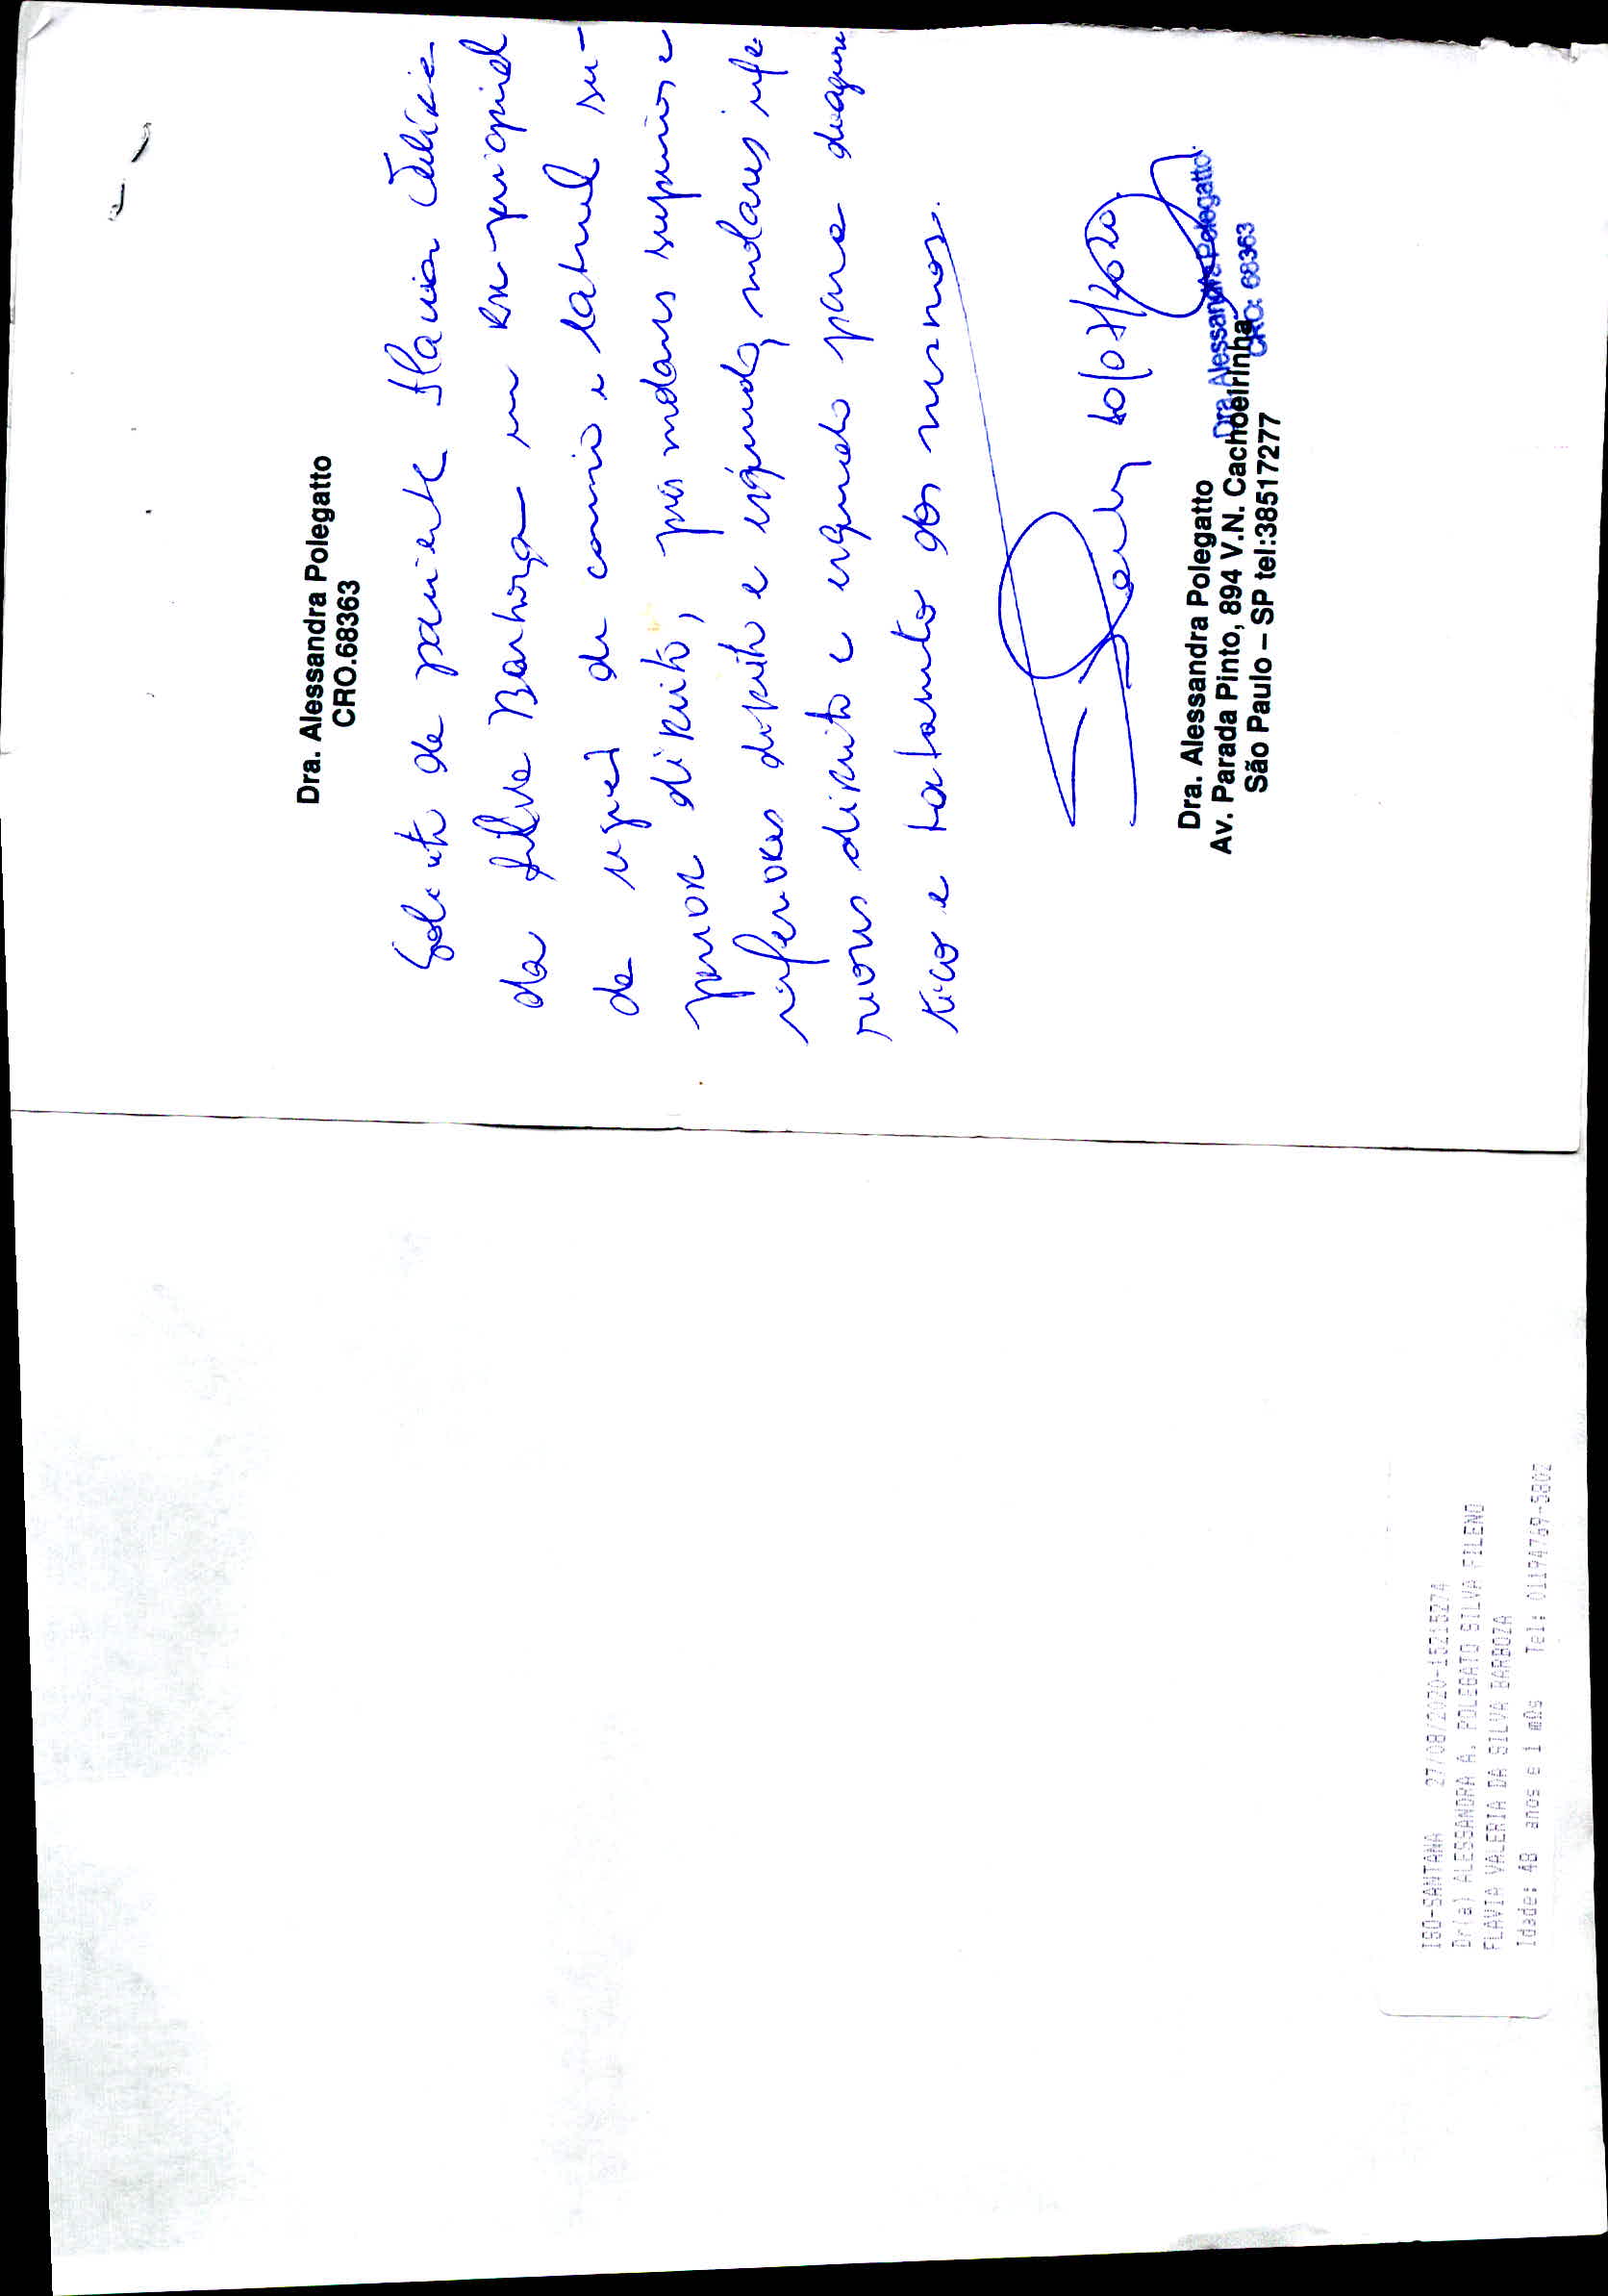 Dra. Alessandra Polegatto
CRO.68363
Solicito da paciente Flavia Valéria
da Silva Barboza um rx periapical
da região de canino e lateral su-
perior direito, pre molares superiores e
inferiores direito e esquerdo, molares infe
riores direito e esquerdo para diagnos
tico e tratamento dos mesmos.
20/07/2020
Dra. Alessandra Polegatto
CRO: 68363
Dra. Alessandra Polegatto
Av. Parada Pinto, 894 V.N. Cachoeirinha
São Paulo – SP tel:38517277
ISO-SANTANA 27/08/2020-15215274
Dr(a) ALESSANDRA A. POLEGATO SILVA FILENO
FLAVIA VALERIA DA SILVA BARBOZA
Idade: 48 anos e 1 mês Tel: 01194769-5802